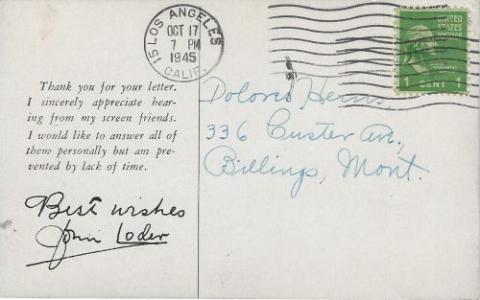 LOS ANGELES
15
OCT 17
7 PM
1945
CALIF.
UNITED
STATES
1 CENT 1
Thank you for your letter.
I sincerely appreciate hear-
ing from my screen friends.
I would like to answer all of
them personally but am pre-
vented by lack of time.
Best wishes
John Loder
Dolores
336 Custer Av.,
Billings, Mont.